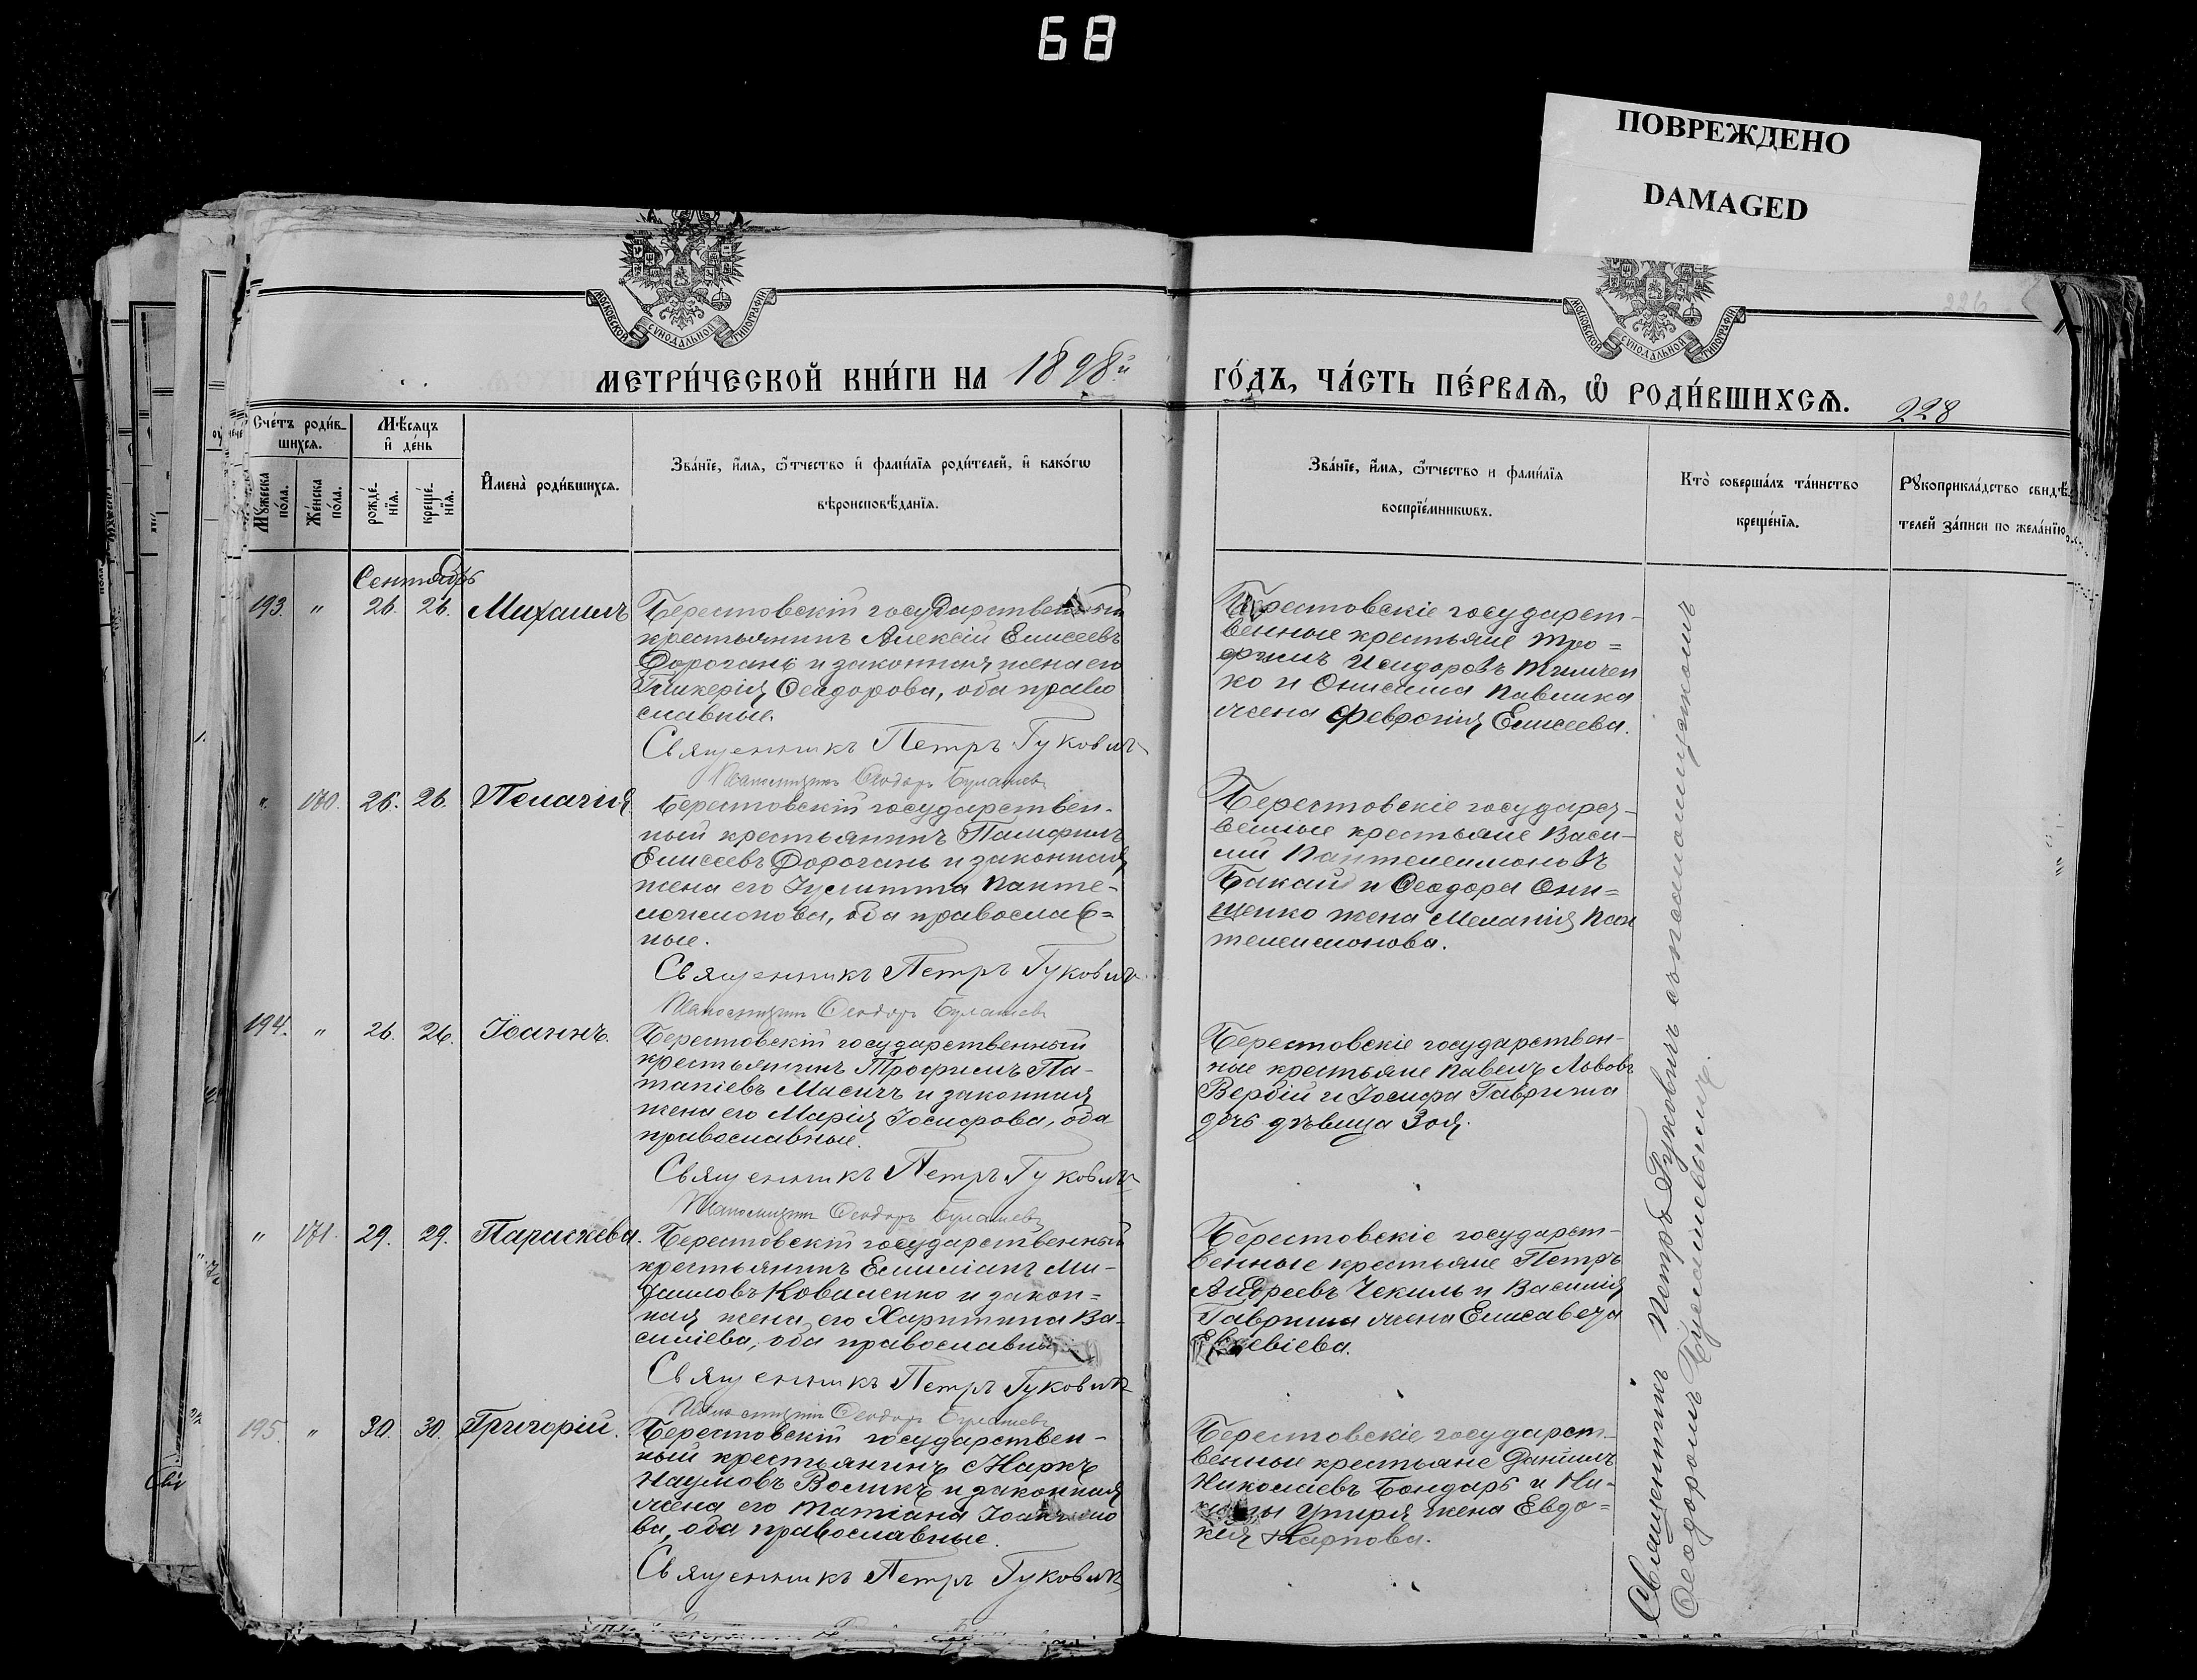 68
ПОВРЕЖДЕНО
DAMAGED
МОСКОВСКОЙ СѴНОДАЛЬНОЙ ТИПОГРАФІИ
МОСКОВСКОЙ СѴНОДАЛЬНОЙ ТИПОГРАФІИ
226
МЕТРИ́ЧЕСКОЙ КНИ́ГИ НА 1898й
ГО́ДЪ, ЧА́СТЬ ПЕ́РВАѦ, Ѡ҆ РОДИ́ВШИХСѦ.
228
Сче́тъ роди́в-
шихсѧ.
Мѣ́сѧцъ
и҆ де́нь
Мꙋ́жеска
по́ла.
Же́нска
по́ла.
рожде́-
нїѧ.
креще́-
нїѧ.
И҆мена̀ роди́вшихсѧ.
Зва́нїе, и҆́мѧ, ѻ҆́тчество и҆ фами́лїѧ роди́телей, и҆ како́гѡ
вѣроисповѣ́данїѧ.
Зва́нїе, и҆́мѧ, ѻ҆́тчество и фами́лїѧ
воспрїе́мникѡвъ.
Кто̀ соверша́лъ та́инство
креще́нїѧ.
Рꙋкоприкла́дство свидѣ́-
телей за́писи по жела́нїю
Сентябрь
193. " 26. 26. Михаилъ
Берестовскій государственный
крестьянинъ Алексій Елисеевъ
Дорогань и законная жена его
Гликерія Ѳеодорова, оба право
славные.
Священникъ Петръ Гукович
Псаломщикъ Ѳеодоръ Булашевъ
Берестовскіе государст-
венные крестьяне Тро=
фимъ Исидоровъ Тимчен
ко и Онисима Павлика
жена Февронія Елисеева.
" 170. 26. 26. Пелагія
Берестовскій государствен-
ный крестьянинъ Памфилъ
Елисеевъ Дорогань и законная
жена его Іулитта Панте-
леимонова, оба православ=
ные.
Священникъ Петръ Гукович
Псаломщикъ Ѳеодоръ Булашевъ
Берестовскіе государст-
венные крестьяне Васи-
лій Пантелеимоновъ
Бакай и Ѳеодора Они=
щенко жена Меланія Пан
телеимонова.
194. " 26. 26. Іоаннъ.
Берестовскій государственный
крестьянинъ Трофимъ По-
тапіевъ Масичъ и законная
жена его Марія Іосифова, оба
православные.
Священникъ Петръ Гукович
Псаломщикъ Ѳеодоръ Булашевъ
Берестовскіе государствен-
ные крестьяне Павелъ Львовъ
Вербій и Іосифа Гавриша
дочь дѣвица Зоя.
" 171. 29. 29. Параскева.
Берестовскій государственный
крестьянинъ Емиліанъ Ми-
хаиловъ Коваленко и закон=
ная жена его Харитина Ва-
силіева, оба православные
Священникъ Петръ Гукович
Псаломщикъ Ѳеодоръ Булашевъ
Берестовскіе государст-
венные крестьяне Петръ
Андреевъ Чекиль и Василія
Гавриша жена Елисавета
195. " 30. 30. Григорій.
Берестовскій государствен-
ный крестьянинъ Маркъ
Наумовъ Воликъ и законная
жена его Татіана Іоанно
ва, оба православные.
Священникъ Петръ Гукович
Берестовскіе государст-
венные крестьяне Даніилъ
Николаевъ Бондарь и Ни-
жена Евдо=
кія Карпова.
Священникъ Петръ Гуковичъ съ псаломщикомъ
Ѳеодоромъ Булашевымъ.